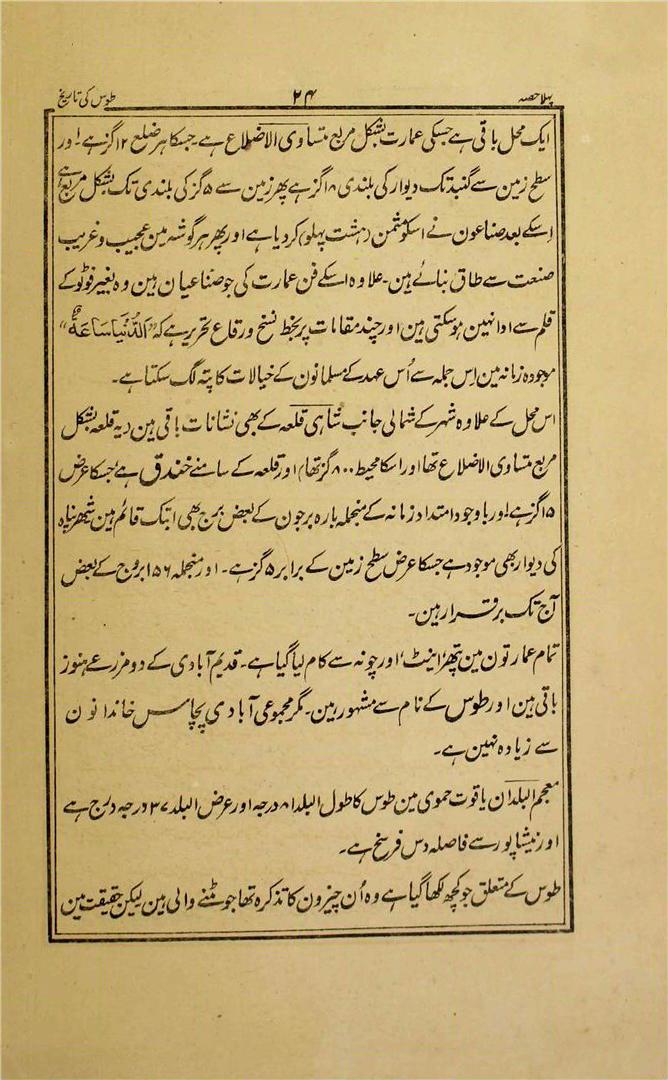 پہلا حصہ ۲۴ طوس کی تاریخ
ایک محل باقی ہے جسکی عمارت بشکل مربع متساوی الاضلاع ہے۔ جسکا ہر ضلع ۱۲ گز ہے اور
سطح زمین سے گنبد تک دیوار کی بلندی ۱۸ گز ہے پھر زمین سے ۵ گز کی بلندی تک بشکل مربع ہے
اِسکے بعد صناعون نے اسکو مثمن (ہشت پہلو) کر دیا ہے اور پھر ہر گوشہ مین عجیب و غریب
صنعت سے طاق بنائے ہین۔ علاوہ اسکے فن عمارت کی جو صناعیان ہین وہ بغیر فوٹو کے
قلم سے ادا نہین ہوسکتی ہین اور چند مقامات پر بخط نسخ و رقاع تحریر ہے کہ "اَلدُّنْیَا سَاعَۃٌ"
موجودہ زمانہ مین اِس جملہ سے اُس عہد کے مسلمانون کے خیالات کا پتہ لگ سکتا ہے۔
اس محل کے علاوہ شہر کے شمالی جانب شاہی قلعہ کے بھی نشانات باقی ہین (یہ قلعہ بشکل
مربع متساوی الاضلاع تھا اور اسکا محیط ۸۰۰ گز تھا) اور قلعہ کے سامنے خندق ہے جسکا عرض
۱۵ گز ہے اور باوجود امتداد زمانہ کے منجملہ بارہ برجون کے بعض برج بھی ابتک قائم ہین شہر پناہ
کی دیوار بھی موجود ہے جسکا عرض سطح زمین کے برابر ۵ گز ہے۔ اور منجملہ ۱۵۶ بروج کے بعض
آج تک برقرار ہین۔
تمام عمارتون مین پتھر، اینٹ، اور چونہ سے کام لیا گیا ہے۔ قدیم آبادی کے دو مزرعے ہنوز
باقی ہین اور طوس کے نام سے مشہور ہین۔ مگر مجموعی آبادی پچاس خاندانون
سے زیادہ نہین ہے۔
معجم البلدان یاقوت حموی مین طوس کا طول البلد ۸۱ درجہ اور عرض البلد ۳۷ درجہ درج ہے
اور نیشاپور سے فاصلہ دس فرسخ ہے۔
طوس کے متعلق جو کچھ لکھا گیا ہے وہ اُن چیزون کا تذکرہ تھا جو مٹنے والی ہین لیکن حقیقت مین